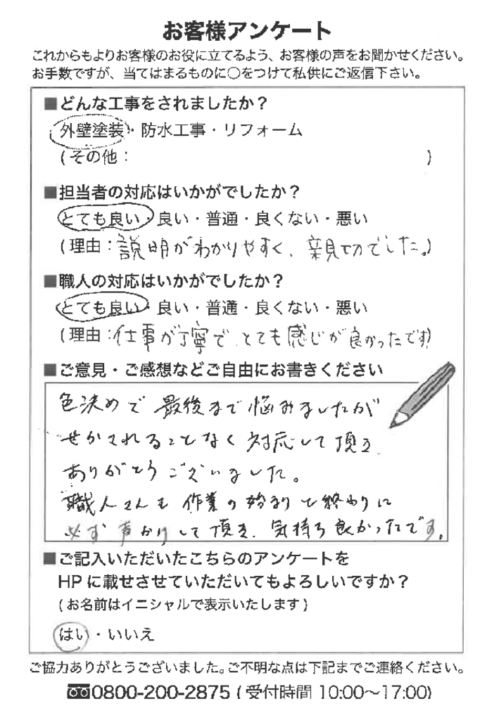 お客様アンケート
これからもよりお客様のお役に立てるよう、お客様の声をお聞かせください。
お手数ですが、当てはまるものに○をつけて私供にご返信下さい。
■どんな工事をされましたか?
外壁塗装・防水工事・リフォーム
(その他: )
■担当者の対応はいかがでしたか?
とても良い・良い・普通・良くない・悪い
(理由:説明がわかりやすく、親切でした。)
■職人の対応はいかがでしたか?
とても良い・良い・普通・良くない・悪い
(理由:仕事が丁寧で、とても感じが良かったです)
■ご意見・ご感想などご自由にお書きください
色決めで最後まで悩みましたが
せかされることなく対応して頂き
ありがとうございました。
職人さんも作業の始まりと終わりに
必ず声かけして頂き、気持ち良かったです。
■ご記入いただいたこちらのアンケートを
HPに載せさせていただいてもよろしいですか?
(お名前はイニシャルで表示いたします)
はい・いいえ
ご協力ありがとうございました。ご不明な点は下記までご連絡ください。
0800-200-2875(受付時間 10:00~17:00)